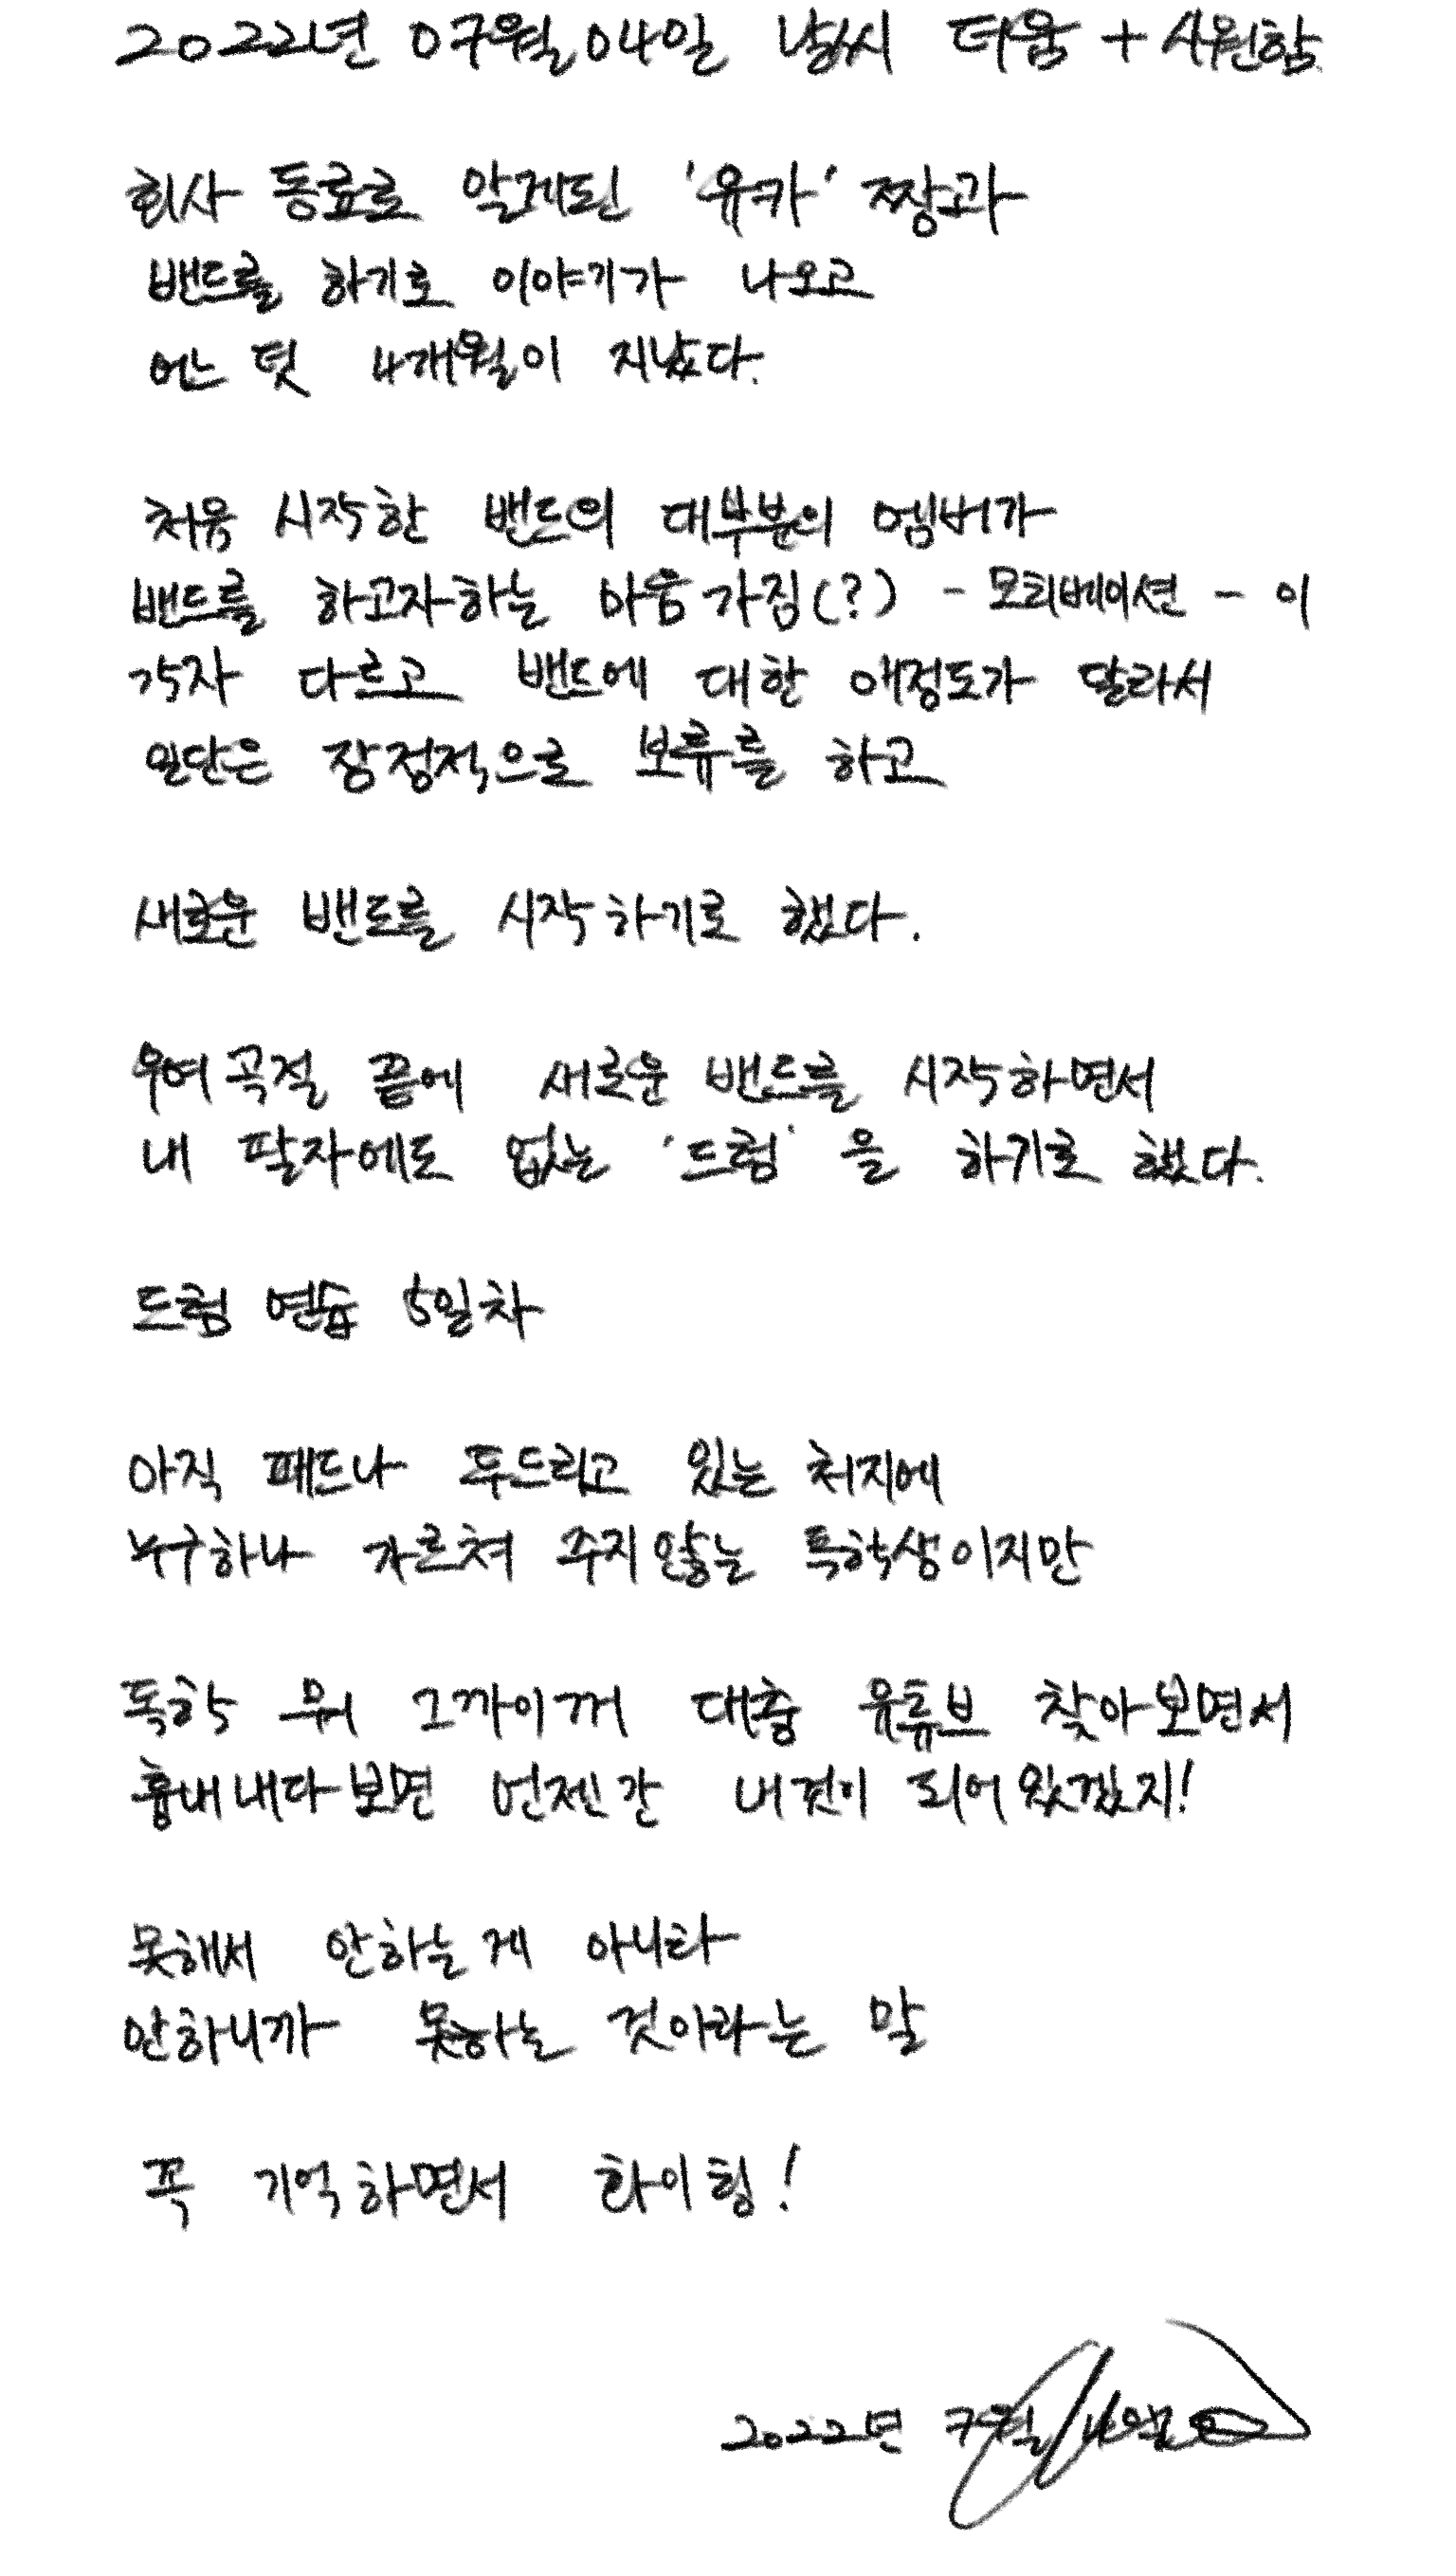 2022년 07월 04일 날씨 더움 + 시원함.
회사 동료로 알게된 '유카' 짱과
밴드를 하기로 이야기가 나오고
어느 덧 4개월이 지났다.
처음 시작한 밴드의 대부분의 멤버가
밴드를 하고자하는 마음가짐(?) - 모티베이션 - 이
각자 다르고 밴드에 대한 애정도가 달라서
일단은 잠정적으로 보류를 하고
새로운 밴드를 시작하기로 했다.
우여곡절 끝에 새로운 밴드를 시작하면서
내 팔자에도 없는 '드럼' 을 하기로 했다.
드럼 연습 5일차
아직 패드나 두드리고 있는 처지에
누구하나 가르쳐 주지않는 독학생이지만
독학 뭐 그까이꺼 대충 유튜브 찾아보면서
흉내내다보면 언젠간 내것이 되어있겠지!
못해서 안하는게 아니라
안하니까 못하는 것이라는 말
꼭 기억하면서 화이팅!
2022년 7월 4일